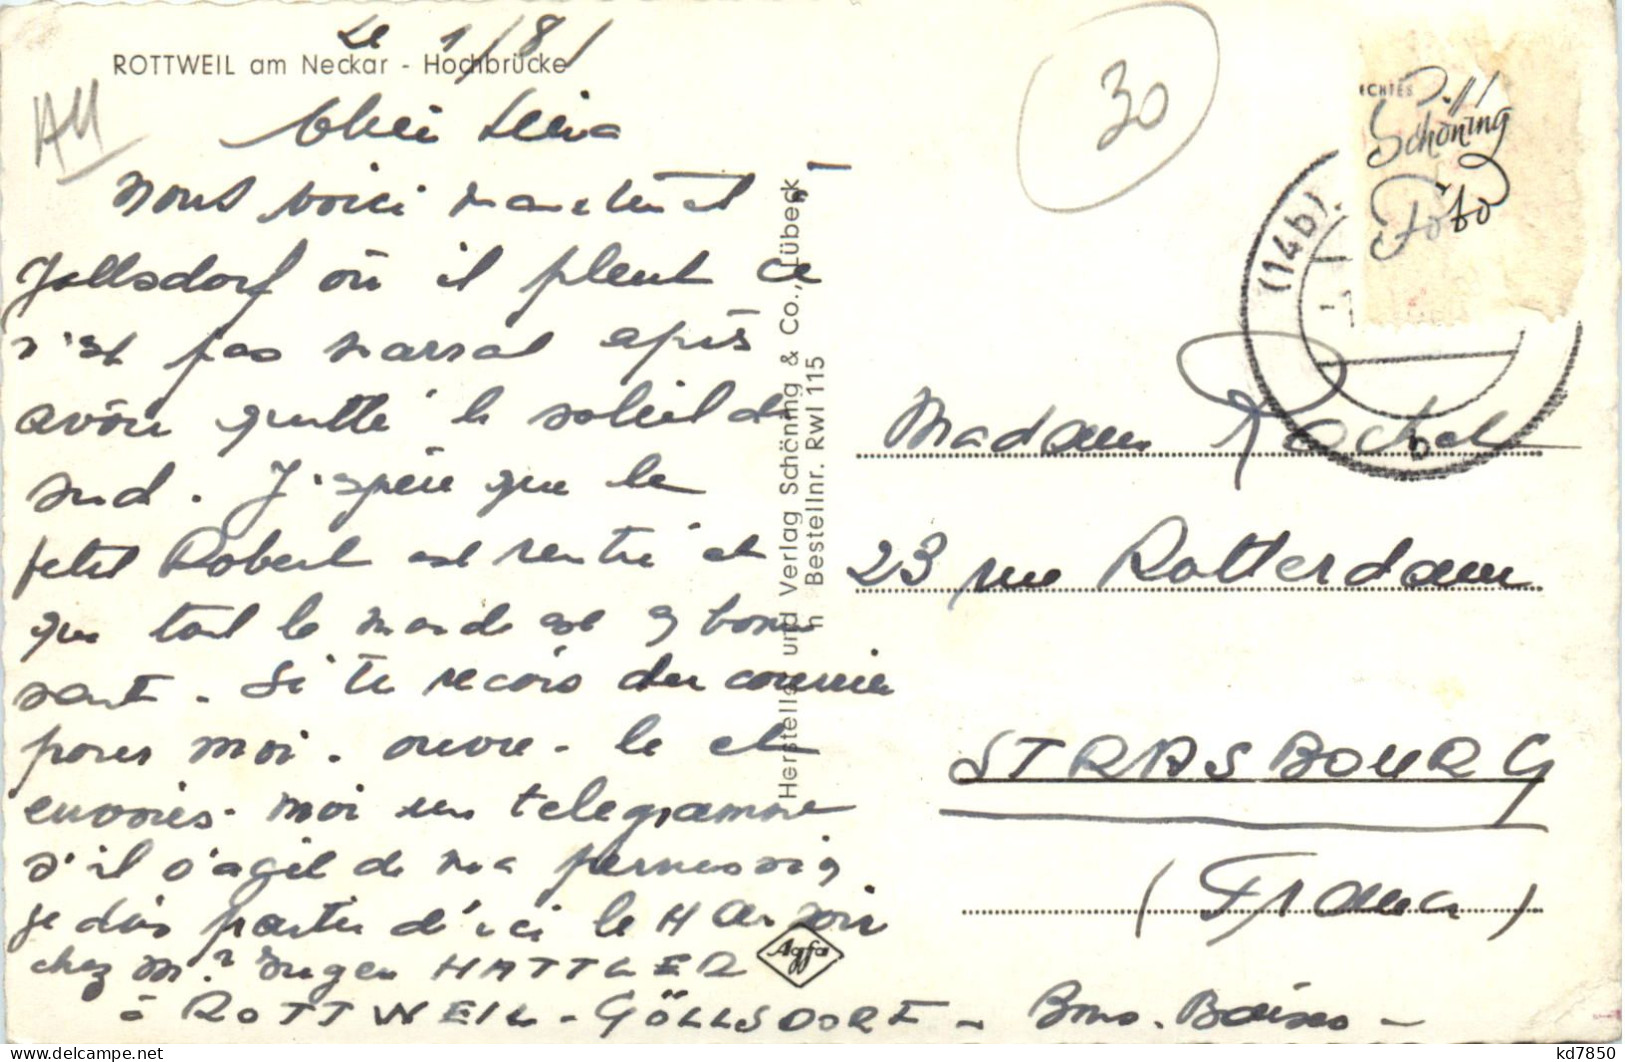 ROTTWEIL am Neckar - Hochbrücke
Le 1/8/
AM
30
Nous voici maintenant
Göllsdorf où il pleut ce
n'est pas normal après
avoir quitté le soleil du
sud. J'espère que le
petit Robert est rentré et
que tout le monde est en bonne
santé. Si tu reçois du courrier
pour moi. ouvre-le et
envoies-moi un télégramme
s'il s'agit de ma permission
je dois partir d'ici le 4 au soir
chez Mr Eugen HATTLER
à ROTTWEIL - GÖLLSDORF - Bons Baisers -
Hersteller und Verlag Schöning & Co., Lübeck
Bestellnr. Rwl 115
Agfa
ECHTES
Schöning
Foto
(14b)
b
Madame
23 rue Rotterdam
STRASBOURG
(France)
kd7850